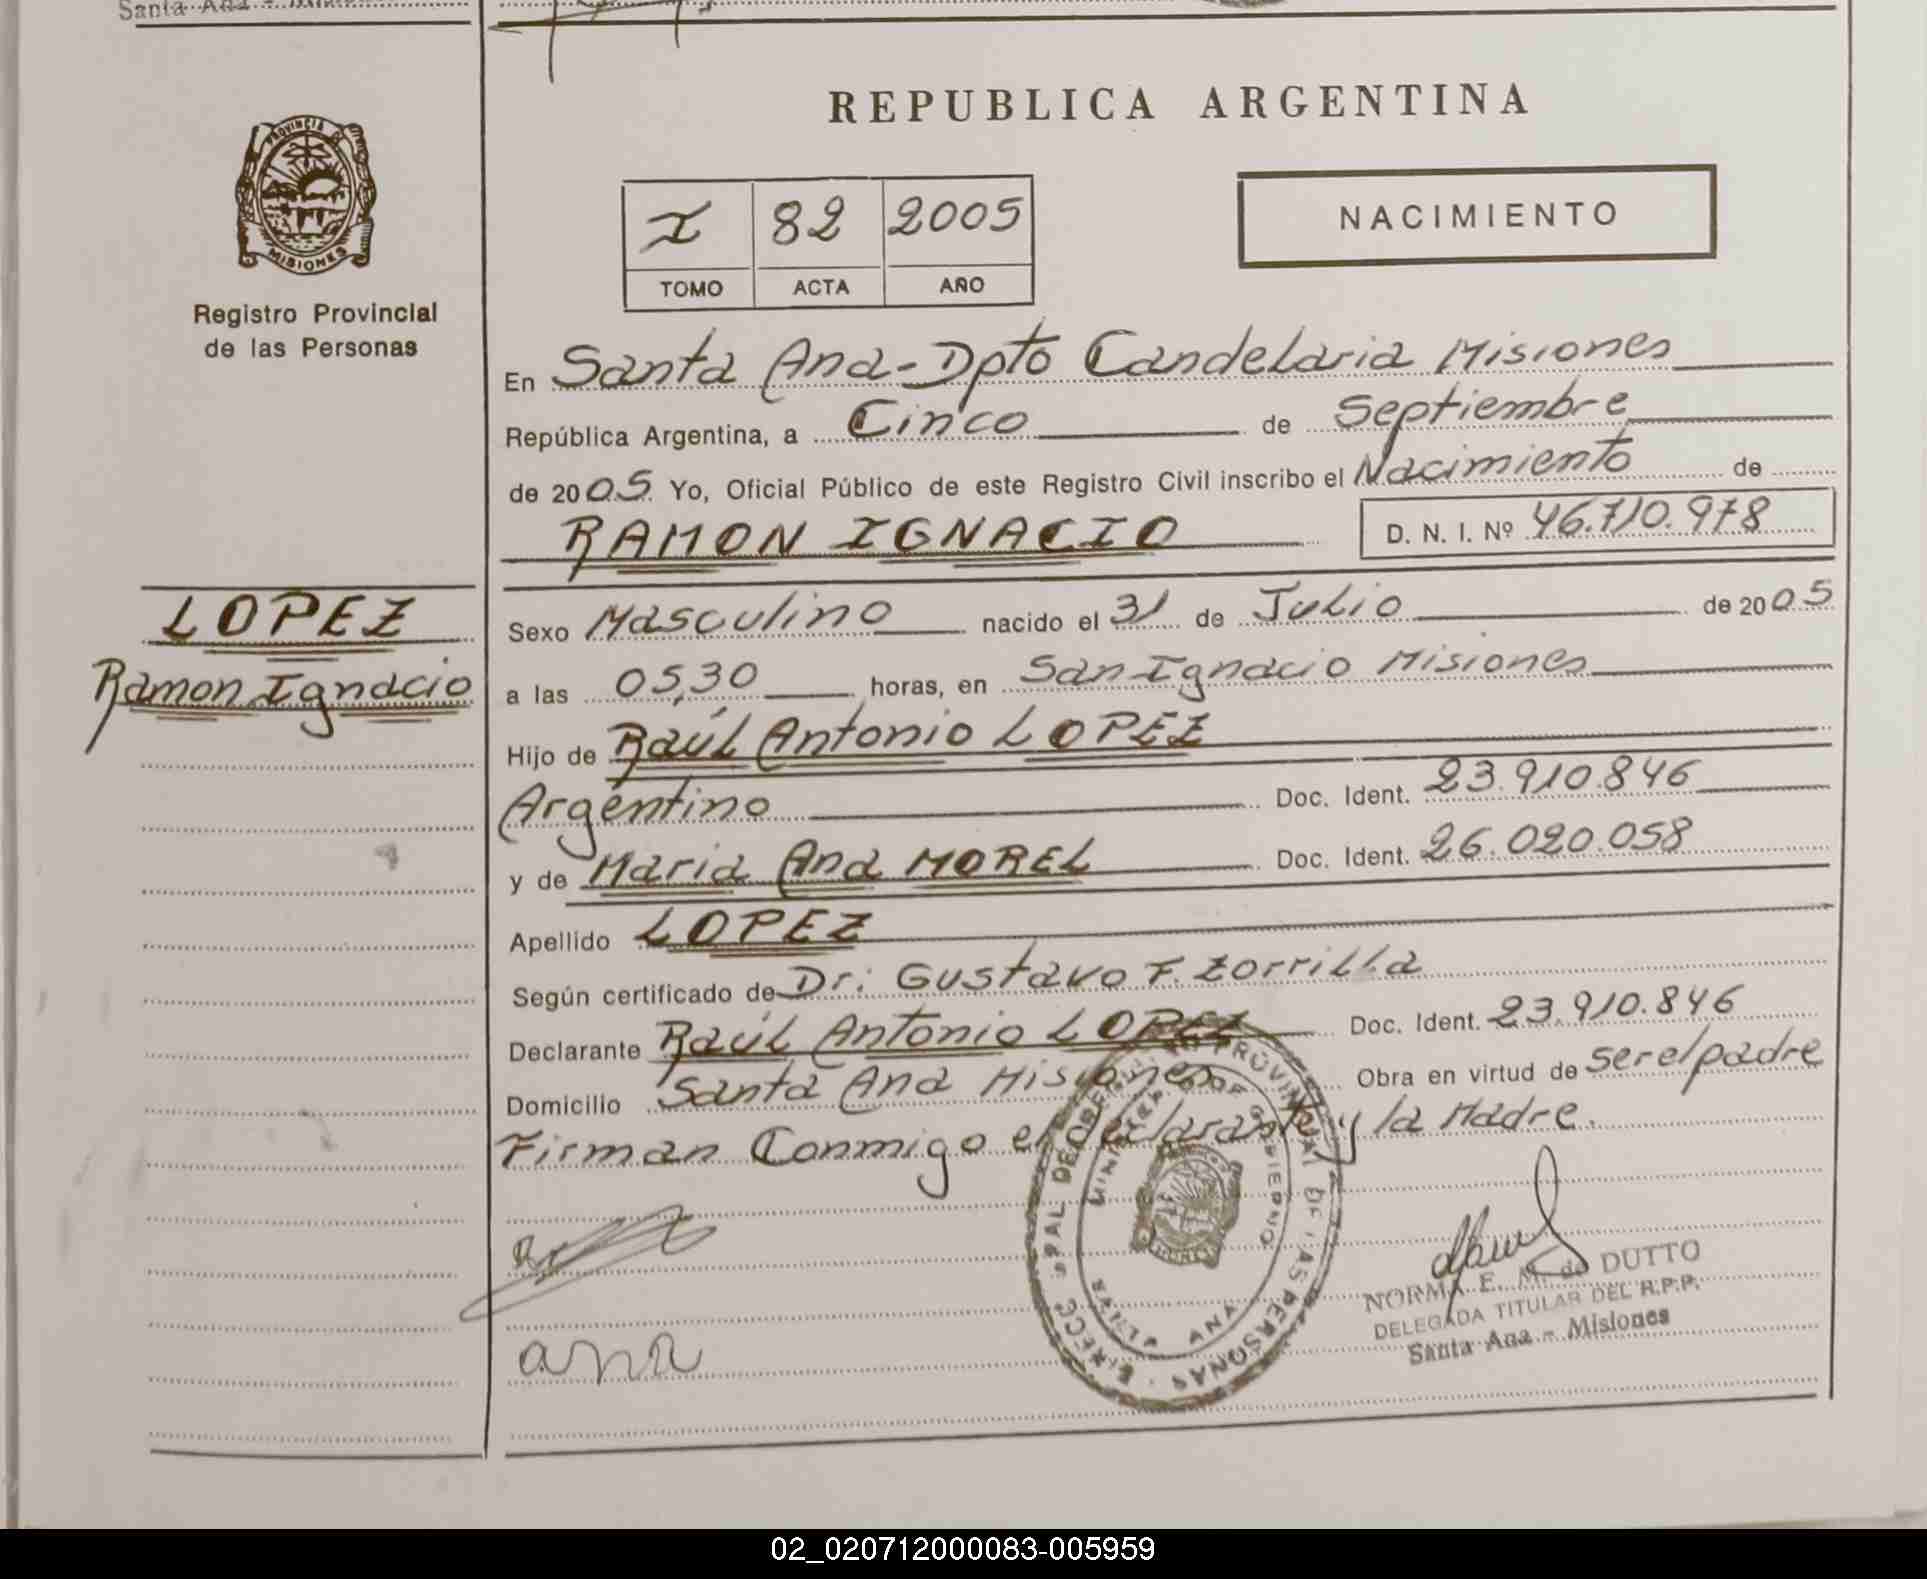 Santa Ana - Misiones
PROVINCIA DE
MISIONES
Registro Provincial
de las Personas
LOPEZ
Ramon Ignacio
REPUBLICA ARGENTINA
I 82 2005
TOMO ACTA AÑO
NACIMIENTO
En Santa Ana-Dpto Candelaria Misiones
República Argentina, a Cinco de Septiembre
de 2005. Yo, Oficial Público de este Registro Civil inscribo el Nacimiento de
RAMON IGNACIO D. N. I. Nº 46.710.978
Sexo Masculino nacido el 31 de Julio de 2005
a las 05,30 horas, en San Ignacio Misiones
Hijo de Raúl Antonio LOPEZ
Argentino Doc. Ident. 23.910.846
y de Maria Ana MOREL Doc. Ident. 26.020.058
Apellido LOPEZ
Según certificado de Dr: Gustavo F. Zorrilla
Declarante Raúl Antonio LOPEZ Doc. Ident. 23.910.846
Domicilio Santa Ana Misiones Obra en virtud de ser el padre
Firman Conmigo el declarante y la Madre.
PROVINCIAL DE LAS PERSONAS
SANTA ANA
ana
NORMA E. M. de DUTTO
DELEGADA TITULAR DEL R.P.P.
Santa Ana - Misiones
02_020712000083-005959